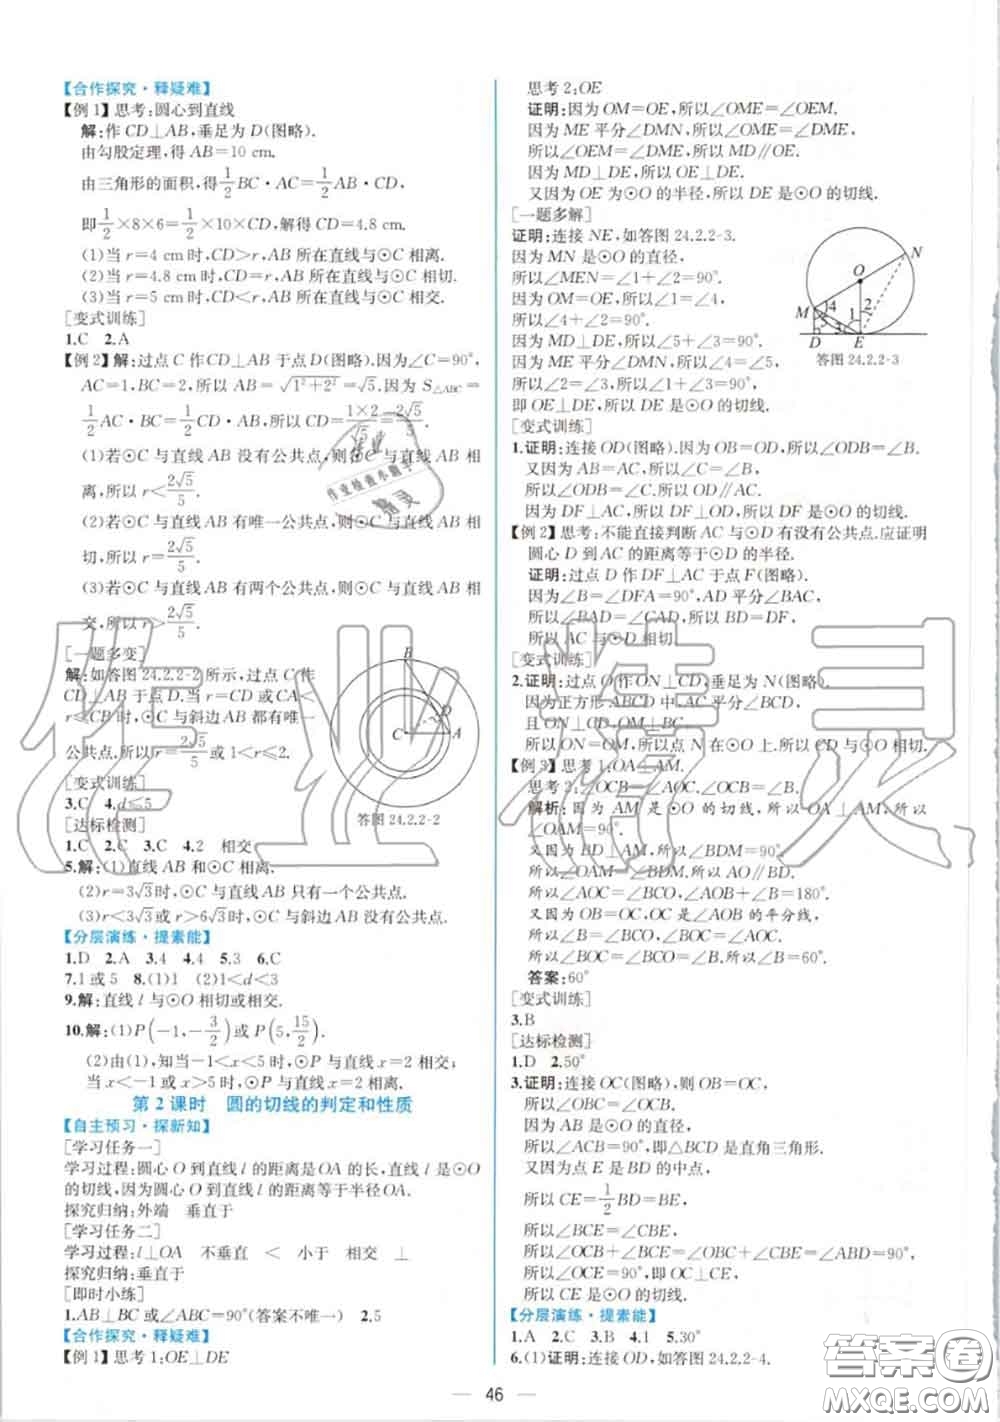 【合作探究·释疑难】
【例1】思考:圆心到直线
解:作CD⊥AB,垂足为D(图略).
由勾股定理,得AB=10 cm.
由三角形的面积,得1/2BC·AC=1/2AB·CD,
即1/2×8×6=1/2×10×CD,解得CD=4.8 cm.
(1)当r=4 cm时,CD>r,AB所在直线与⊙C相离.
(2)当r=4.8 cm时,CD=r,AB所在直线与⊙C相切.
(3)当r=5 cm时,CD<r,AB所在直线与⊙C相交.
[变式训练]
1.C 2.A
【例2】解:过点C作CD⊥AB于点D(图略).因为∠C=90°,
AC=1,BC=2,所以AB=√(1²+2²)=√5.因为S△ABC=
1/2AC·BC=1/2CD·AB,所以CD=(1×2)/√5=2√5/5.
(1)若⊙C与直线AB没有公共点,则⊙C与直线AB相
离,所以r<2√5/5.
(2)若⊙C与直线AB有唯一公共点,则⊙C与直线AB相
切,所以r=2√5/5.
(3)若⊙C与直线AB有两个公共点,则⊙C与直线AB相
交,所以r>2√5/5.
[一题多变]
解:如答图24.2.2-2所示,过点C作
CD⊥AB于点D.当r=CD或CA<
r≤CB时,⊙C与斜边AB都有唯一
公共点,所以r=2√5/5或1<r≤2.
B
D
C
A
答图24.2.2-2
[变式训练]
3.C 4.d≤5
[达标检测]
1.C 2.C 3.C 4.2 相交
5.解:(1)直线AB和⊙C相离.
(2)r=3√3时,⊙C与直线AB只有一个公共点.
(3)r<3√3或r>6√3时,⊙C与斜边AB没有公共点.
【分层演练·提素能】
1.D 2.A 3.4 4.4 5.3 6.C
7.1或5 8.(1)1 (2)1<d<3
9.解:直线l与⊙O相切或相交.
10.解:(1)P(-1,-3/2)或P(5,15/2).
(2)由(1),知当-1<x<5时,⊙P与直线x=2相交;
当x<-1或x>5时,⊙P与直线x=2相离.
第2课时 圆的切线的判定和性质
【自主预习·探新知】
[学习任务一]
学习过程:圆心O到直线l的距离是OA的长,直线l是⊙O
的切线,因为圆心O到直线l的距离等于半径OA.
探究归纳:外端 垂直于
[学习任务二]
学习过程:l⊥OA 不垂直 < 小于 相交 ⊥
探究归纳:垂直于
[即时小练]
1.AB⊥BC或∠ABC=90°(答案不唯一) 2.5
【合作探究·释疑难】
【例1】思考1:OE⊥DE
思考2:OE
证明:因为OM=OE,所以∠OME=∠OEM.
因为ME平分∠DMN,所以∠OME=∠DME,
所以∠OEM=∠DME,所以MD∥OE.
因为MD⊥DE,所以OE⊥DE.
又因为OE为⊙O的半径,所以DE是⊙O的切线.
[一题多解]
证明:连接NE,如答图24.2.2-3.
因为MN是⊙O的直径,
所以∠MEN=∠1+∠2=90°.
因为OM=OE,所以∠1=∠4,
所以∠4+∠2=90°.
因为MD⊥DE,所以∠5+∠3=90°.
因为ME平分∠DMN,所以∠4=∠5,
所以∠2=∠3,所以∠1+∠3=90°,
即OE⊥DE,所以DE是⊙O的切线.
O
N
M
4
2
1
3
D
E
答图24.2.2-3
[变式训练]
1.证明:连接OD(图略).因为OB=OD,所以∠ODB=∠B.
又因为AB=AC,所以∠C=∠B,
所以∠ODB=∠C,所以OD∥AC.
因为DF⊥AC,所以DF⊥OD,所以DF是⊙O的切线.
【例2】思考:不能直接判断AC与⊙D有没有公共点.应证明
圆心D到AC的距离等于⊙D的半径.
证明:过点D作DF⊥AC于点F(图略).
因为∠B=∠DFA=90°,AD平分∠BAC,
所以∠BAD=∠CAD,所以BD=DF,
所以AC与⊙D相切.
[变式训练]
2.证明:过点O作ON⊥CD,垂足为N(图略).
因为正方形ABCD中,AC平分∠BCD,
且ON⊥CD,OM⊥BC,
所以ON=OM,所以点N在⊙O上.所以CD与⊙O相切.
【例3】思考1:OA⊥AM.
思考2:∠OCB=∠AOC.∠OCB=∠B.
解析:因为AM是⊙O的切线,所以OA⊥AM,所以
∠OAM=90°.
又因为BD⊥AM,所以∠BDM=90°,
所以∠OAM=∠BDM,所以AO∥BD,
所以∠AOC=∠BCO,∠AOB+∠B=180°.
又因为OC是∠AOB的平分线,
所以∠B=∠BCO,∠BOC=∠BCO,
所以∠B=∠BOC=∠BCO=60°.
答案:60°
[变式训练]
3.B
[达标检测]
1.D 2.50°
3.证明:连接OC(图略),则OB=OC,
所以∠OBC=∠OCB.
因为AB是⊙O的直径,
所以∠ACB=90°,即△BCD是直角三角形.
又因为点E是BD的中点,
所以CE=1/2BD=BE,
所以∠BCE=∠CBE,
所以∠OCB+∠BCE=∠OBC+∠CBE=∠ABD=90°,
所以∠OCE=90°,即OC⊥CE,
所以CE是⊙O的切线.
【分层演练·提素能】
1.A 2.C 3.B 4.1 5.30°
6.(1)证明:连接OD,如答图24.2.2-4.
— 46 —
作业精灵
答案圈
MXQE.COM